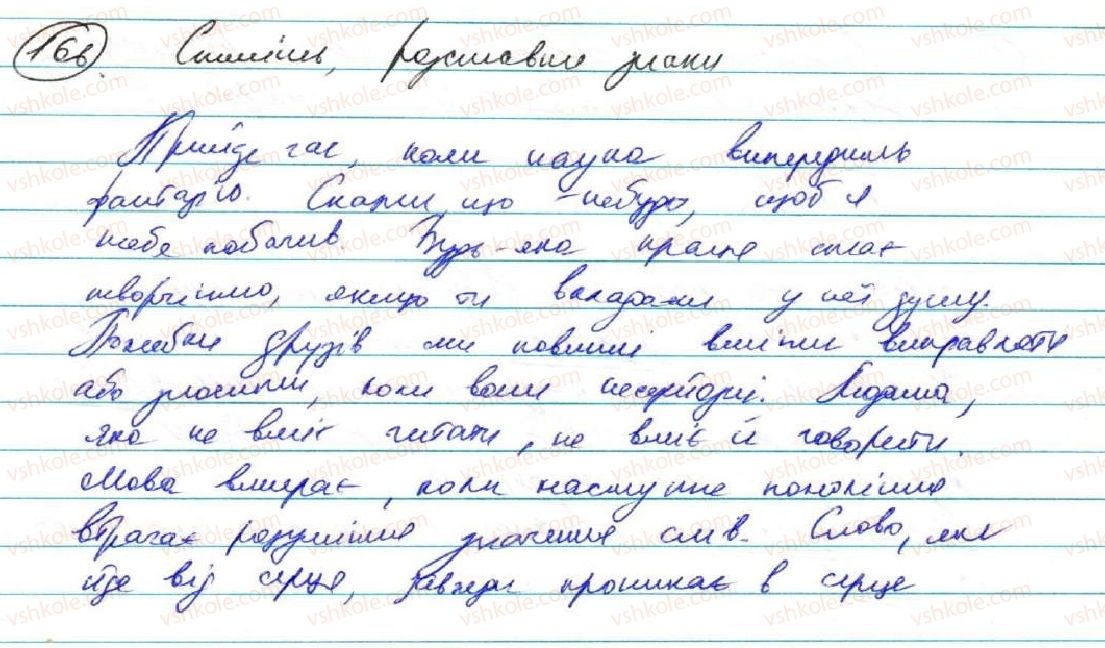 166. Спишіть, розставивши знаки
Прийде час, коли наука випередить
фантазію. Скажи що-небудь, щоб я
тебе побачив. Будь-яка праця стає
творчістю, якщо ти вкладаєш у неї душу.
Помилки друзів ми повинні вміти виправляти
або зносити, коли вони несерйозні. Людина,
яка не вміє читати, не вміє й говорити.
Мова вмирає, коли наступне покоління
втрачає розуміння значення слів. Слово, яке
йде від серця, завжди проникає в серце